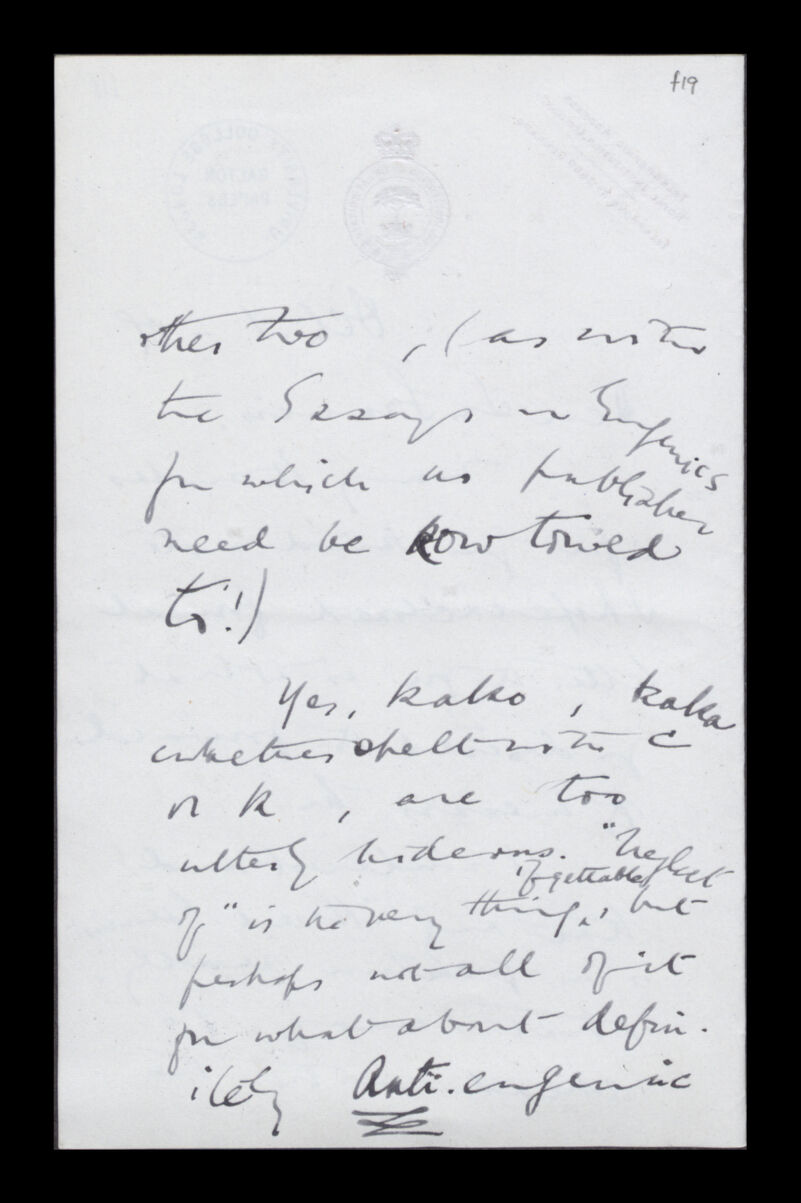 f19
other two, (as with
the Essays in Eugenics
for which no publisher
need be kow towed
to!)
Yes, kako, kaka
whether spelt with c
or k, are too
utterly hideous. "Neglect
if gettable,
of" is the very thing, but
perhaps not all of it
for what about defin-
itely Anti-eugenic